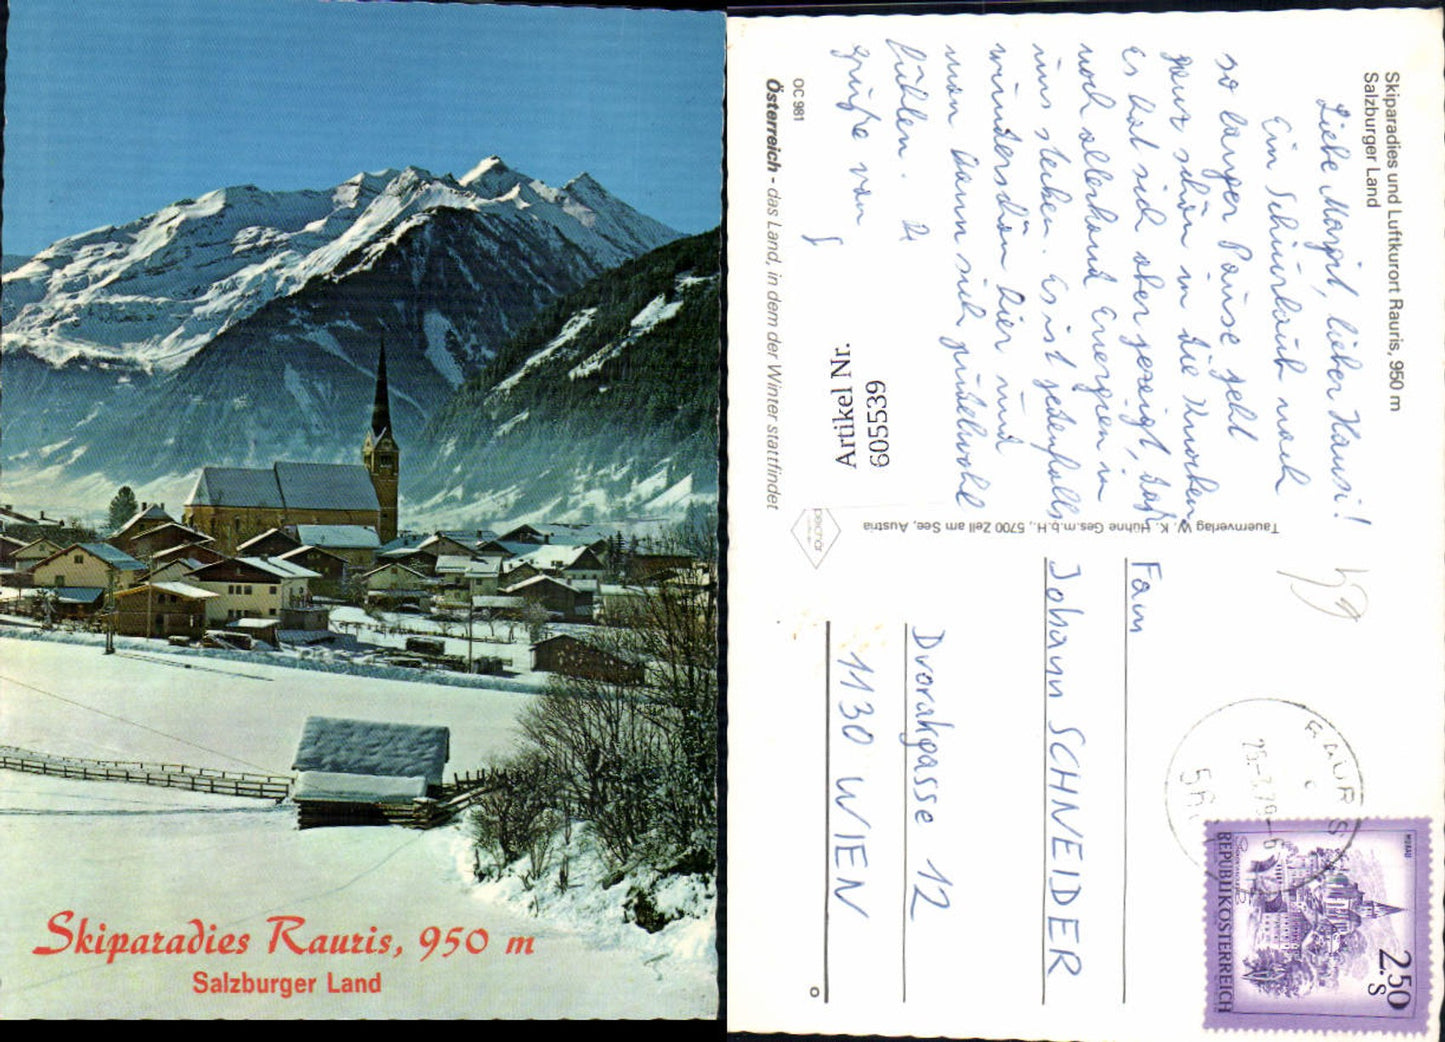 Skiparadies Rauris, 950 m
Salzburger Land
Skiparadies und Luftkurort Rauris, 950 m
Salzburger Land
Liebe Margit, lieber Hansi!
Ein Schiurlaub nach
so langer Pause geht
ganz schön in die Knochen
Es hat sich aber gezeigt, daß
noch allerhand Energien in
uns stecken. Es ist jedenfalls
wunderschön hier und
man kann sich pudelwohl
fühlen.
Grüße von
OC 981
Österreich - das Land, in dem der Winter stattfindet
Artikel Nr.
605539
Tauernverlag W. K. Huhne Ges.m.b.H., 5700 Zell am See, Austria
Fam
Johann SCHNEIDER
Dvorakgasse 12
1130 WIEN
RAURIS
REPUBLIK ÖSTERREICH
MURAU
2.50
S